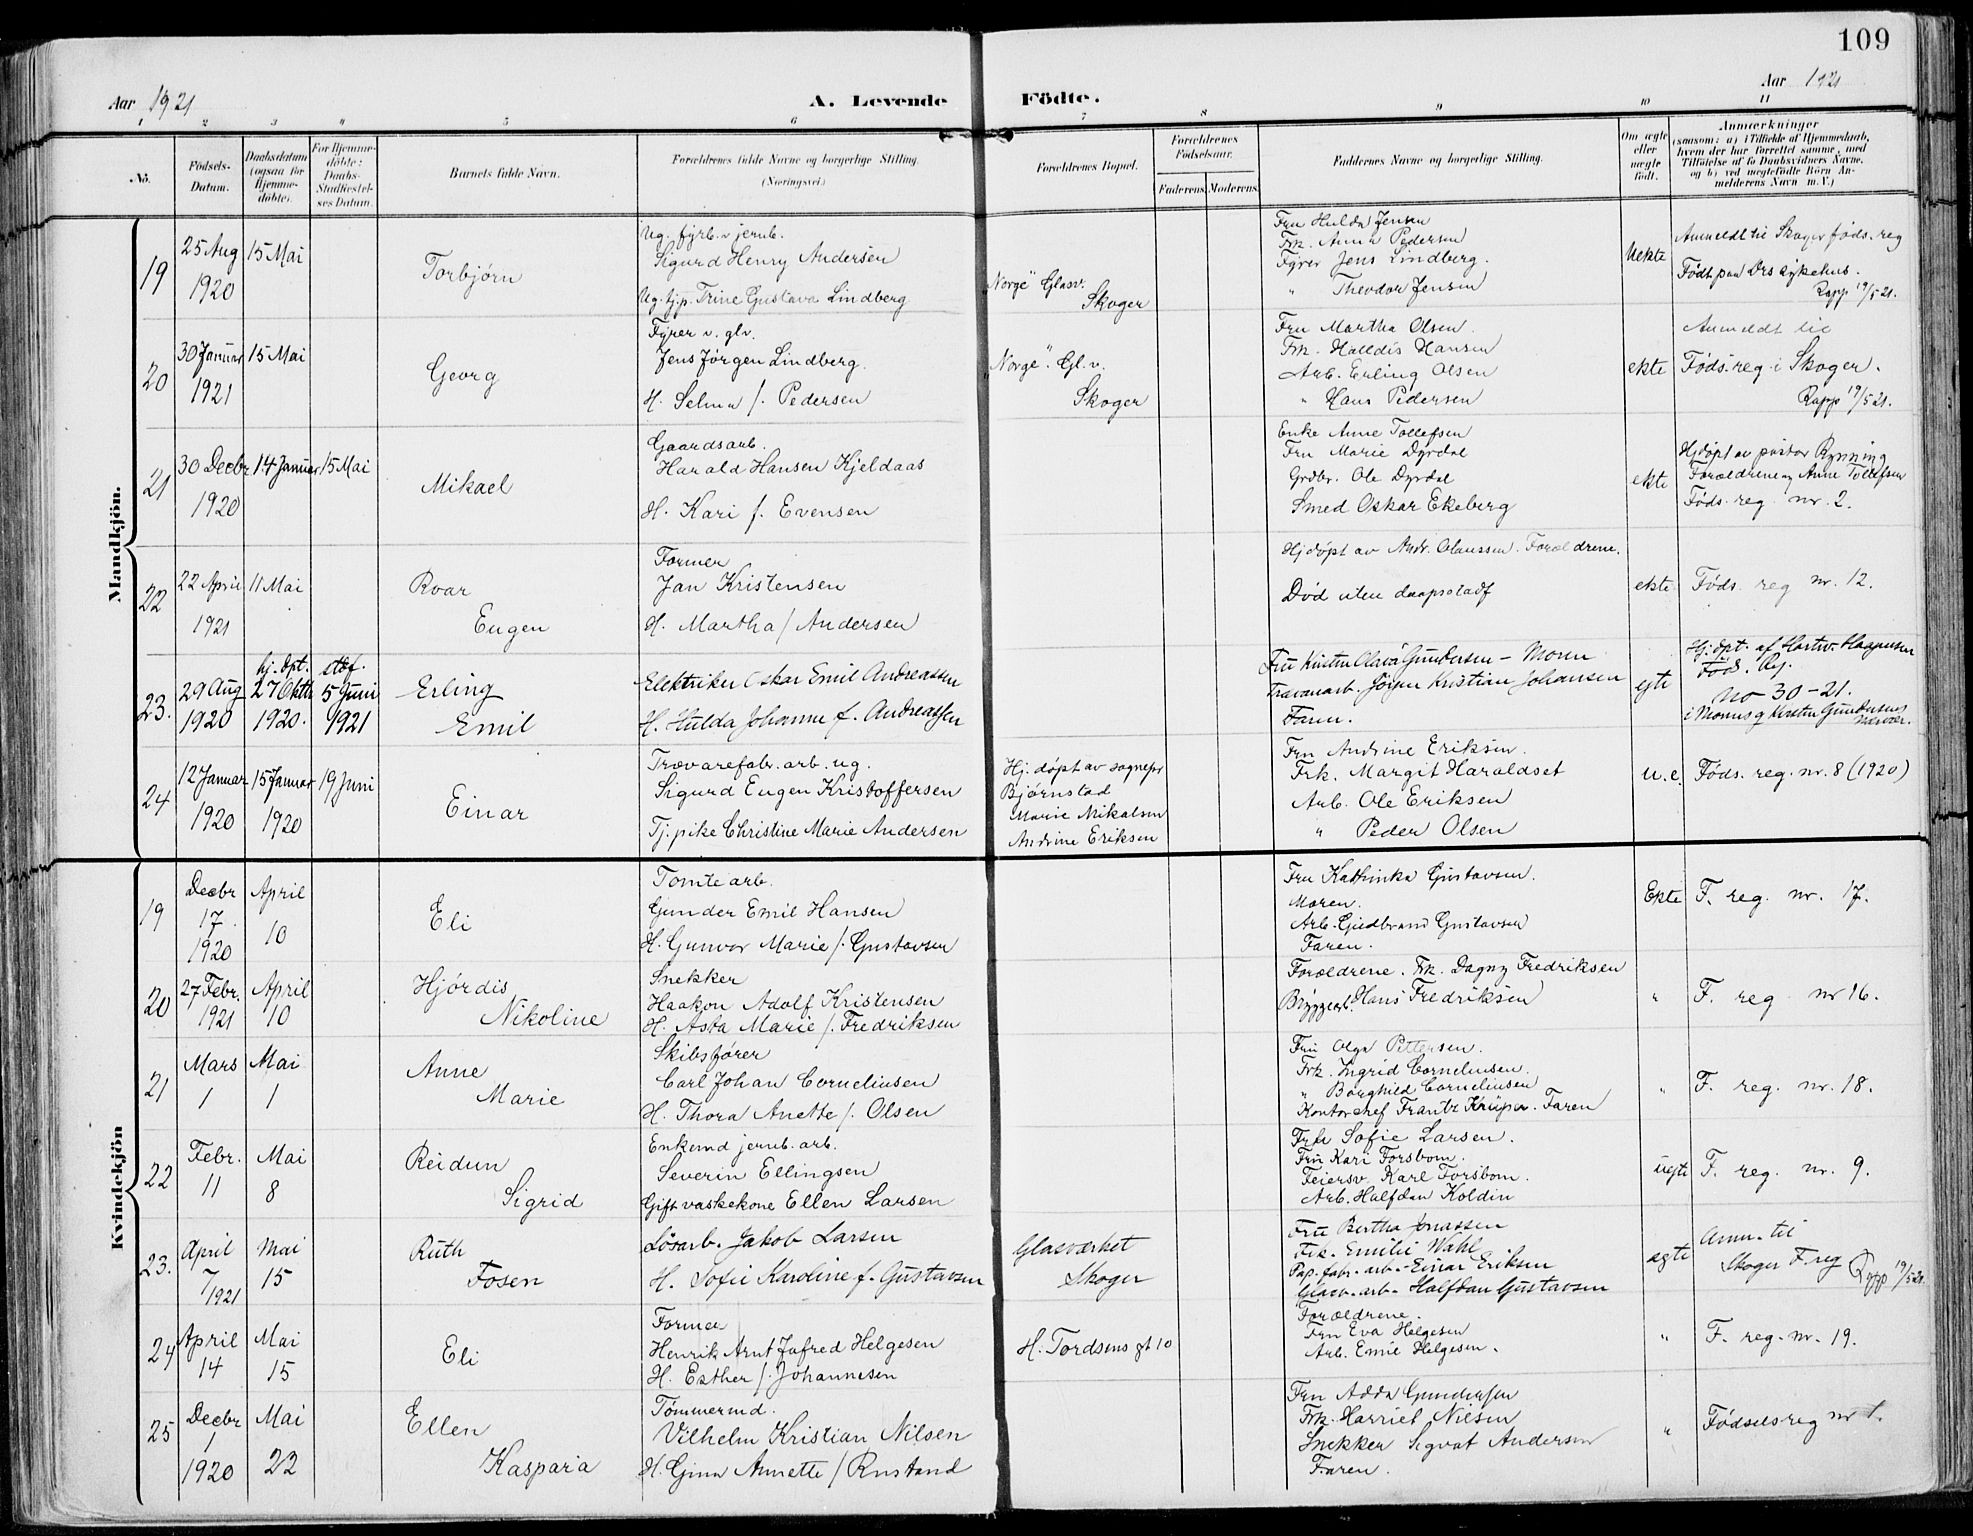 109
Aar 1921
A. Levende Födte.
Aar 1921
1 2 3 4 5 6 7 8 9 10 11
No.
Födsels-Datum.
Daabsdatum (ogsaa for Hjemmedöbte).
For Hjemmedöbte: Daabs-Stadfæstelses Datum.
Barnets fulde Navn.
Forældrenes fulde Navne og borgerlige Stilling. (Næringsvei.)
Forældrenes Bopæl.
Forældrenes Födselsaar.
Faderens. Moderens.
Faddernes Navne og borgerlige Stilling.
Om ægte eller uægte födt.
Anmærkninger (saasom: a) i Tilfælde af Hjemmedaab, hvem der har forrettet samme, med Tilföielse af to Daabsvidners Navne, og b) ved uegtefödte Börn Anmelderens Navn m. V.)
Mandkjön.
19
25 Aug 1920
15 Mai
Torbjørn
Ug. fyrb. v jernb.
Sigurd Henry Andersen
Ug. tjp. Trine Gustava Lindberg
"Norge" Glasv.
Skoger
Fru Hulda Jensen
Frk. Anna Pedersen
Fyrer Jens Lindberg.
" Theodor Jensen
Uekte
Anmeldt til Skoger føds. reg
Født paa Drs sykehus.
Rapp 19/5 21.
20
30 Januar 1921
15 Mai
Georg
Fyrer v. glv.
Jens Jørgen Lindberg.
H. Selma f. Pedersen
"Norge". Gl. v.
Skoger
Fru Martha Olsen.
Frk. Halldis Hansen
Arb. Erling Olsen
" Hans Pedersen
ekte
Anmeldt til
Føds. reg. i Skoger.
Rapp 19/5 21.
21
30 Decbr 1920
14 Januar
15 Mai
Mikael
Gaardsarb.
Harald Hansen Kjeldaas
H. Kari f. Evensen
Enke Anne Tollefsen
Fru Marie Dyrdal
Grdbr. Ole Dyrdal
Smed Oskar Ekeberg
ekte
Hjdøpt av pastor Rynning
Forældrene og Anne Tollefsen
Føds. reg nr. 2.
22
22 April 1921
11 Mai
Roar
Eugen
Former
Jan Kristensen
H. Martha f Andersen
Hjdøpt av Andr. Olaussen. Forældrene.
Død uten daapsstadf
ekte
Føds. reg nr. 12.
23.
29 Aug 1920
hj. dpt. 27 Oktb 1920.
staf. 5 Juni 1921
Erling
Emil
Elektriker Oskar Emil Andreassen
H. Hulda Johanne f. Andreassen
Fru Kirsten Olava Gundersen - Moren
Travarearb. Jörgen Kristian Johansen
Faren.
egte
Hj. dpt. af Hartv. Haagensen
Fød. Rg.
No 30-21.
24
12 Januar 1920
15 Januar 1920
19 Juni
Einar
Trævarefabr. arb. ug.
Sigurd Eugen Kristoffersen
Tj. pike Christine Marie Andersen
Hj. døpt av sognepr
Bjørnstad
Marie Mikalsen
Andrine Eriksen
Fru Andrine Eriksen.
Frk. Margit Haraldset
Arb. Ole Eriksen
" Peder Olsen
u.e.
Føds. reg. nr. 8 (1920)
Kvindekjön
19
Decbr 17. 1920
April 10
Eli
Tomtearb.
Gunder Emil Hansen
H. Gunvor Marie f. Gustavsen
Fru Kathinka Gustavsen.
Moren.
Arb. Gudbrand Gustavsen
Faren.
Ekte
F. reg. nr. 17.
20
27 Febr. 1921
April 10
Hjördis
Nikoline
Snekker
Haakon Adolf Kristensen
H. Asta Marie f. Fredriksen
Forældrene. Frk. Dagny Fredriksen
Bryggearb. Hans Fredriksen
"
F. reg. nr 16.
21
Mars 1
Mai 1
Anne
Marie
Skibsfører
Carl Johan Corneliusen
H. Thora Anette f. Olsen
Fru Olga Pettersen.
Frk. Ingrid Corneliusen.
" Borghild Corneliusen
Kontorchef Frantz Krüger. Faren
"
F. reg. nr. 18.
22
Febr. 11
Mai 8
Reidun
Sigrid
Enkemd jernb. arb.
Severin Ellingsen
Gift vaskekone Ellen Larsen
Frk Sofie Larsen.
Fru Kari Forsbom.
Feiersv. Karl Forsbom.
Arb. Halfdan Koldin
uegte
F. reg. nr. 9.
23.
April 7/1921
Mai 15
Ruth
Fosen
Løsarb. Jakob Larsen
H. Sofie Karoline f. Gustavsen
Glasværket
Skoger
Fru Bertha Jonassen
Frk. Emilie Wahl
Pap. fabr. arb. Einar Eriksen
Glasv. arb. Halfdan Gustavsen
egte
Anm. til
Skoger F. reg
Rapp 19/5 21.
24
April 14
Mai 15
Eli
Former
Henrik Arnt Jafred Helgesen
H. Esther f. Johannesen
H. Tordsens gt 10
Forældrene.
Fru Eva Helgesen
Arb. Emil Helgesen.
"
F. reg. nr. 19.
25
Decbr 1 1920
Mai 22
Ellen
Kasparia
Tømmermd.
Vilhelm Kristian Nilsen
H. Gina Annette f Rustand
Fru Adda Gundersen
Frk. Harriet Nilsen
Snekker Sigvat Andersen
Faren.
"
Fødselsreg nr 1.